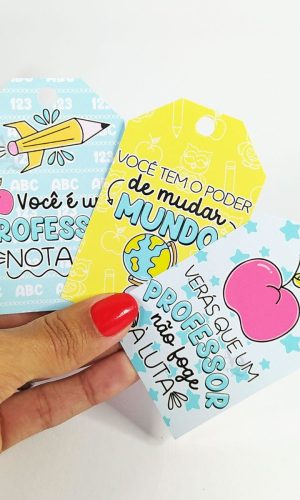 123
123
123
ABC
ABC
Você é u
PROFESS
NOTA
ABC
VOCÊ TEM O PODER
de mudar
MUNDO
VERÁS QUE UM
PROFESSOR
não foge
À LUTA